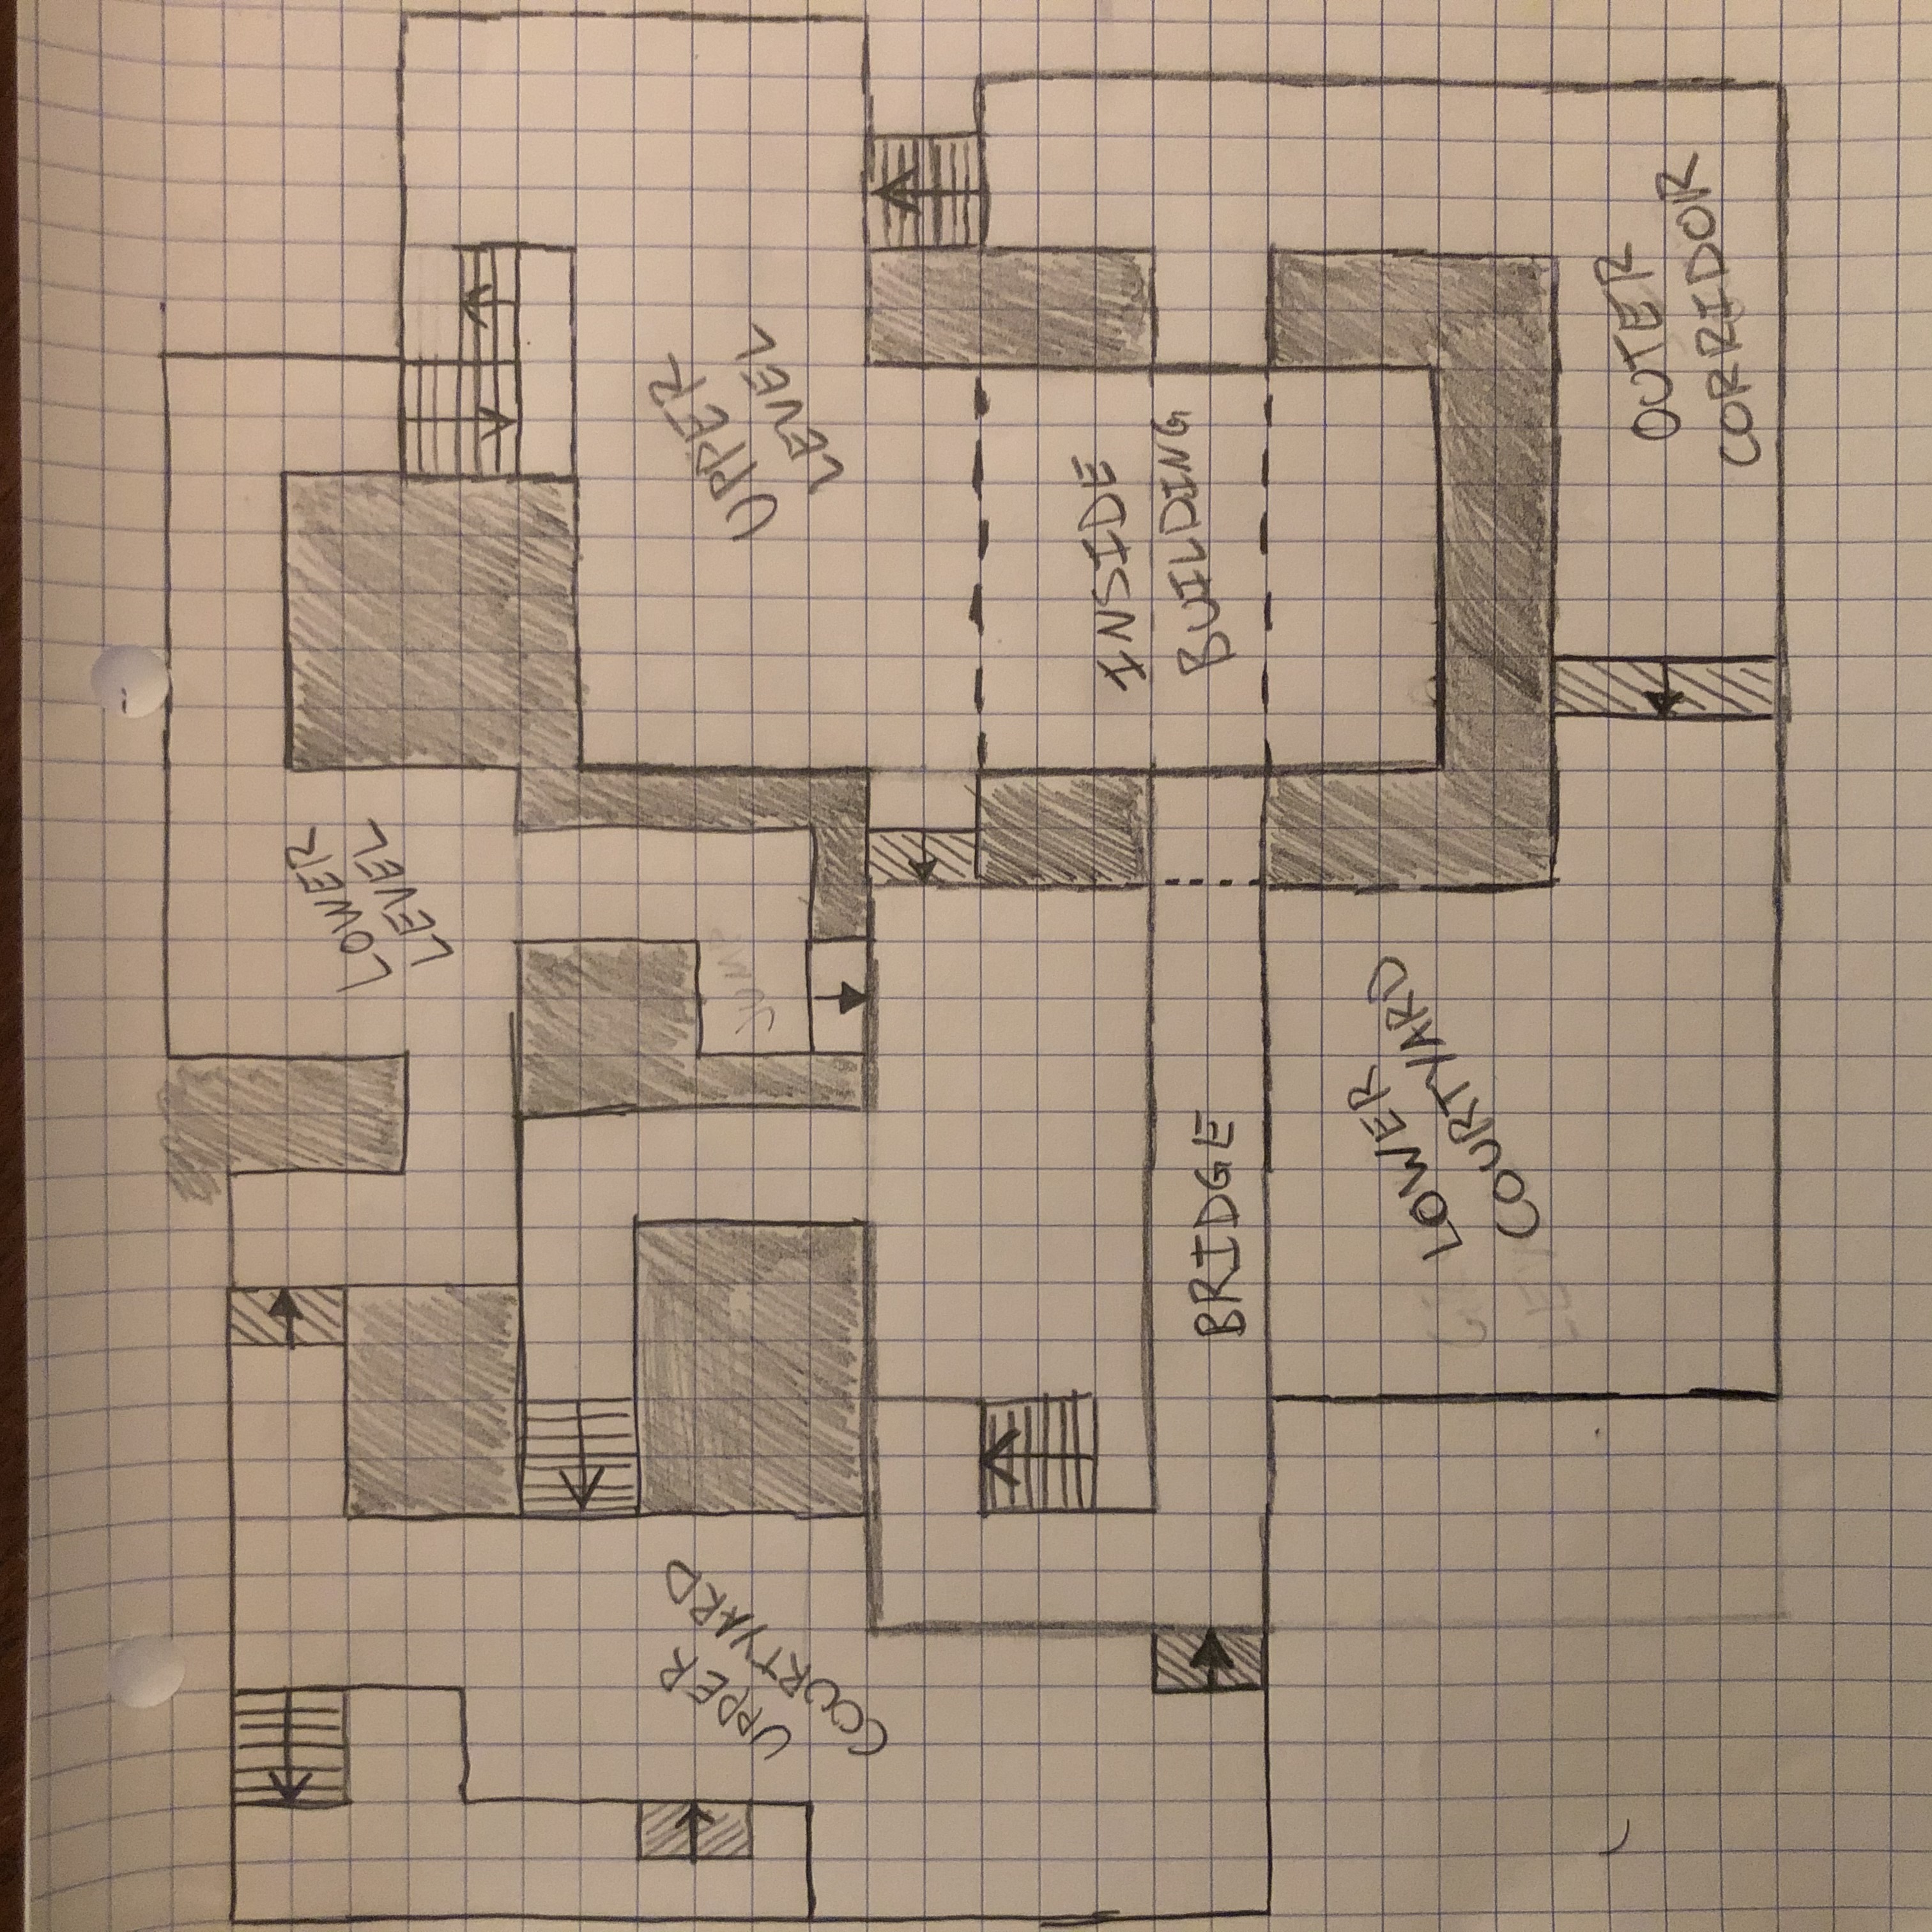 LOWER
LEVEL
UPPER
COURTYARD
JUMP
UPPER
LEVEL
INSIDE
BUILDING
BRIDGE
LOWER
COURTYARD
OUTER
CORRIDOR